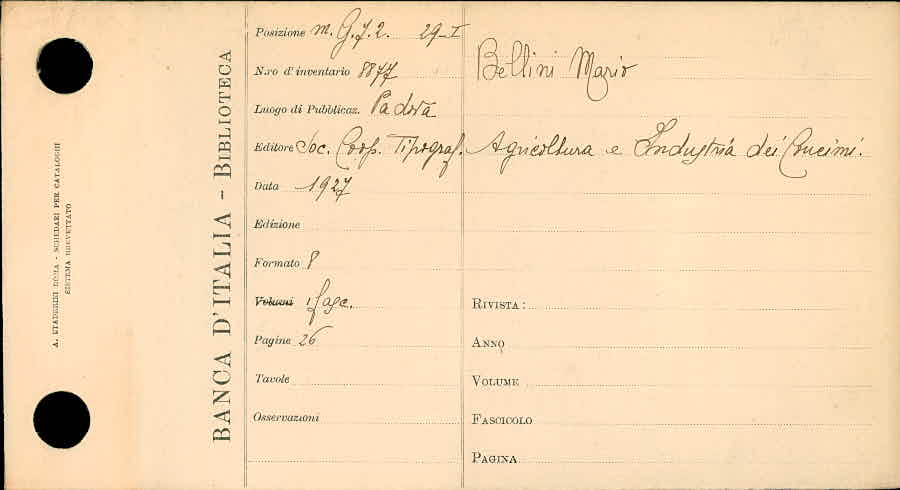 A. STADERINI ROMA - SCHEDARI PER CATALOGHI
SISTEMA BREVETTATO
BANCA D'ITALIA - BIBLIOTECA
Posizione m. G. 7. 2. 29-I
N.ro d'inventario 8877
Luogo di Pubblicaz. Padova
Editore Soc. Coop. Tipograf.
Data 1927
Edizione
Formato 8
Volumi 1 fasc.
Pagine 26
Tavole
Osservazioni
Bellini Mario
Agricoltura e Industria dei Concimi.
RIVISTA:
ANNO
VOLUME
FASCICOLO
PAGINA